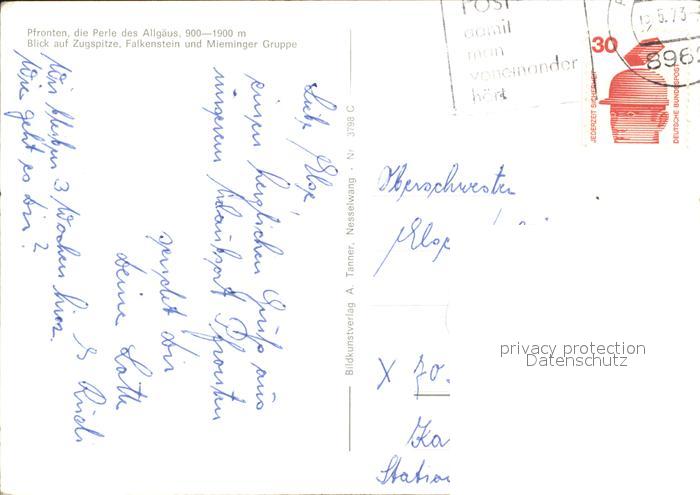 Pfronten, die Perle des Allgäus, 900—1900 m
Blick auf Zugspitze, Falkenstein und Mieminger Gruppe
Liebe Else,
einen herzlichen Gruß aus
unserem Urlaubsort Pfronten
sendet dir
deine Lotte
& Rudi
Wir bleiben 3 Wochen hier.
Wie geht es dir?
Bildkunstverlag A. Tanner, Nesselwang · Nr. 3798 C
POST
damit
man
voneinander
hört
5.73
896
30
JEDERZEIT SICHERHEIT
DEUTSCHE BUNDESPOST
Oberschwester
Else
X 70.
Ka
Station
privacy protection
Datenschutz